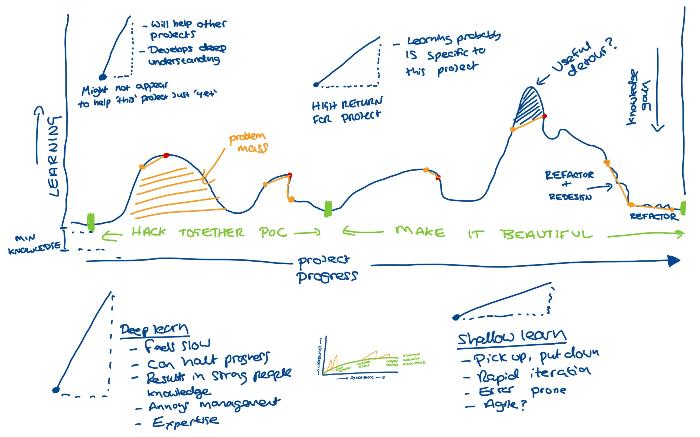 - Will help other
projects
- Develops deep
understanding
Might not appear
to help 'this' project just 'yet'
- Learning probably
IS specific to
this project
HIGH RETURN
FOR PROJECT
USEFUL
detour?
knowledge
gain
LEARNING
problem
mass
REFACTOR
+
REDESIGN
REFACTOR
MIN
KNOWLEDGE
HACK TOGETHER POC
MAKE IT BEAUTIFUL
project
progress
Deep learn
- Feels slow
- Can halt progress
- Results in strong people
knowledge
- Annoys management
- Expertise
Shallow learn
- Pick up, put down
- Rapid iteration
- Error prone
- Agile?